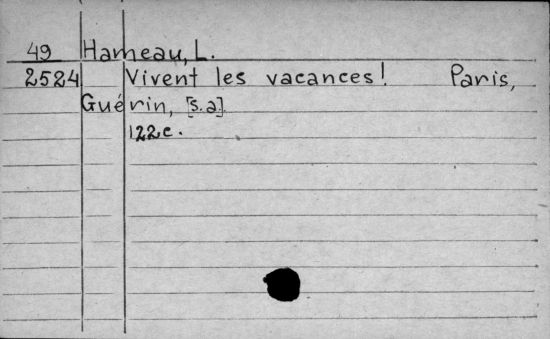 49 Hameau, L.
2524 Vivent les vacances! Paris,
Guérin, [s.a.]
122c.